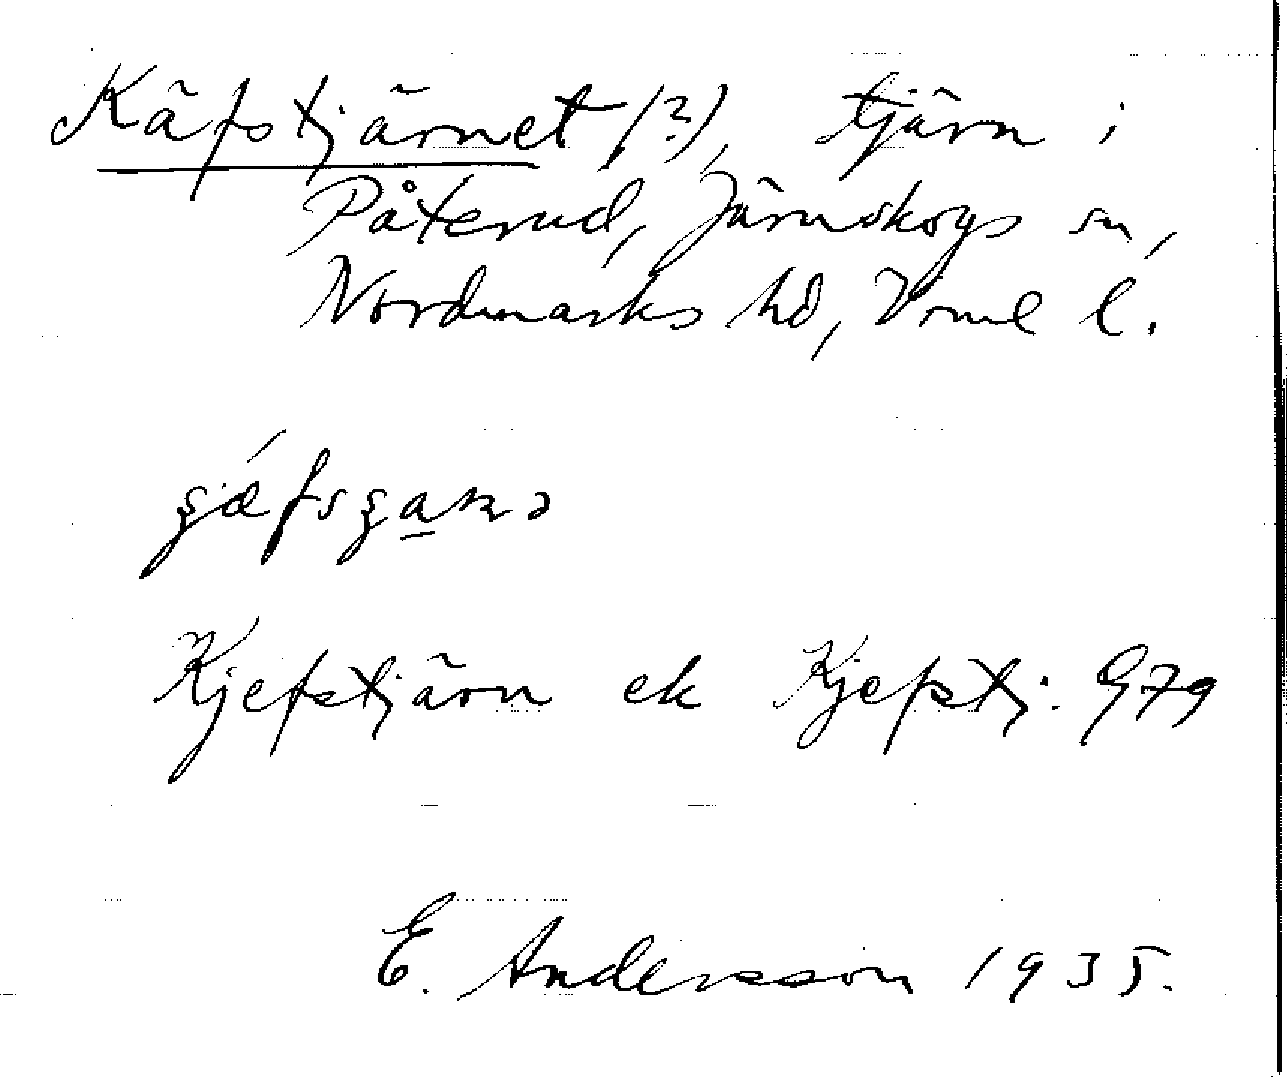 Käfstjärnet (?), tjärn i
Påterud, Järnskogs sn,
Nordmarks hd, Vrml l.
Kjefstjärn ek Kjefstj. G79
E. Andersson 1935.